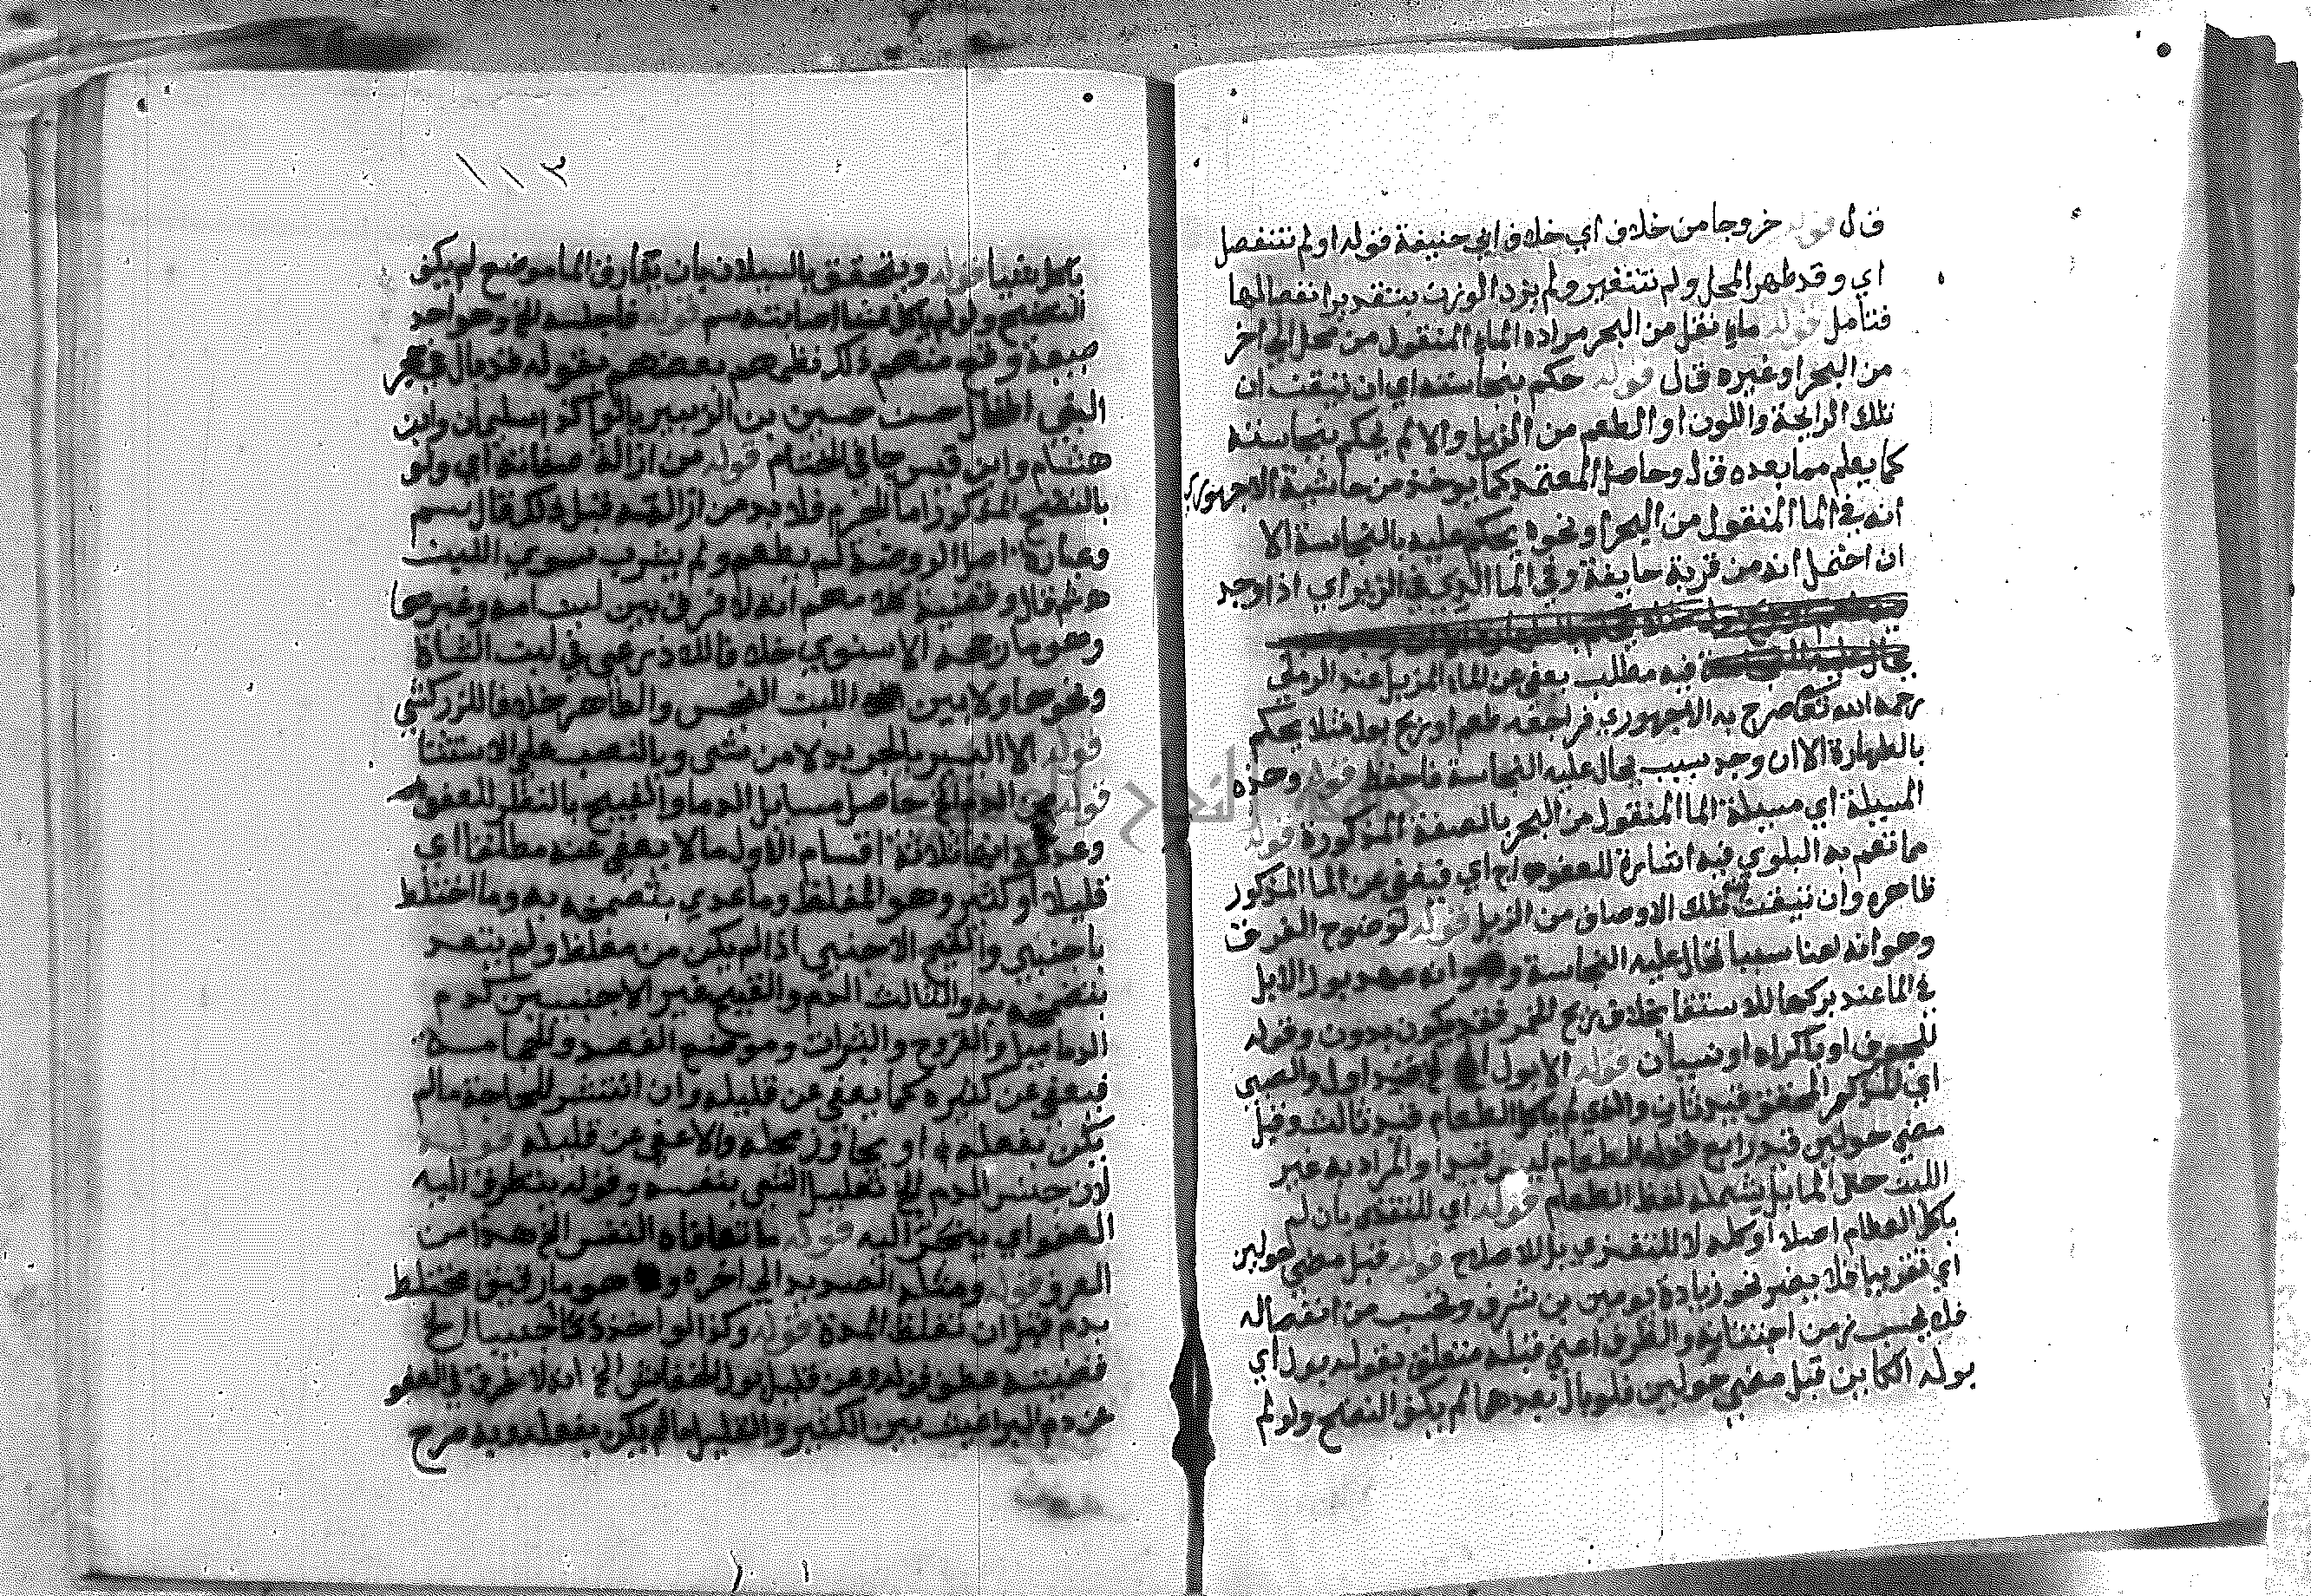 ق ل قوله خروجا من خلاف اي خلاف ابي حنيفة قوله او لم تنفصل
اي وقد طهر المحل ولم تتغير ولم يزد الوزن بتقدير انفصالها
فتامل قوله ماء نقل من البحر مراده الماء المنقول من محل الى اخر
من البحر او غيره ق ل قوله حكم بنجاسته اي ان تيقنت ان
تلك الرايحة واللون او الطعم من الزبل والا لم يحكم بنجاسته
كما يعلم مما بعده ق ل وحاصل المعتمد كما يوخذ من حاشية الاجهوري
انه في الما المنقول من البحر ونحوه يحكم عليه بالنجاسة الا
ان احتمل انه من قربة جايفة وفي الما الذي في الزير اي اذا وجد
فيه مطلب يعفى عن الماء المزبل عند الرملي
رحمه الله تعا صرح به الاجهوري فراجعه طعم او ريح بول مثلا يحكم
بالطهارة الا ان وجد سبب يحال عليه النجاسة فاحفظ قوله وهذه
المسيلة اي مسيلة الما المنقول من البحر بالصفة المذكورة قوله
مما تعم به البلوي فيه اشارة للعفو اج اي فيعفى عن الما المذكور
ظاهره وان تيقنت تلك الاوصاف من الزبل قوله لوضوح الفرق
وهو انه هنا سببا تحال عليه النجاسة وهو انه عهد بول الابل
في الما عند بركها للاستقا بخلاف ريح الخمر فقد يكون بدون وقوله
او باكراه او نسيان قوله الا بول الخ قيد اول والصبي
اي الذكر المحقق قيد ثان والذي لم ياكل الطعام قيد ثالث وقبل
مضي حولين قيد رابع الطعام ليس قيدا والمراد به غير
اللبن حتى الما بل يشمله لفظ الطعام قوله اي للتغذي بان لم
ياكل الطعام اصلا او اكله لا للتغذي بل للاصلاح قوله قبل مضي حولين
اي تقريبا فلا يضر نحو زيادة يومين ب ن شرف وتحسب من انفصاله
فلا يحسب زمن اجتنانه والظرف اعني قبله متعلق بقوله بول اي
بوله الكاين قبل مضي حولين فلو بال بعدهما لم يكف النضح ولو لم
ياكل شيا قوله ويتحقق بالسيلان بان يفارق الما موضع لم يكف
النضح ولو لم ياكل اصابته سم قوله فاجلسه الخ وهو واحد
صبية وقع منهم ذلك نظمهم بعضهم بقوله قد بال في حجر
النبي اطفال حسن حسين بن الزبير بالوا كذا سليمان وابن
هشام وابن قيس جا في الختام قوله من ازالة صفاته اي ولو
بالنضح المذكور اما الجرم فلا بد من ازالته قبل ذلك قال سم
وعبارة اصل الروضة لم يطعم ولم يشرب سوي اللبن
وقضية كلامهم انه لا فرق بين لبن امه وغيرها
وهو ما رجحه الاسنوي خلافا للاذرعي في لبن الشاة
ونحوها ولا بين اللبن النجس والطاهر خلافا للزركشي
قوله الا اليسير بالجر بدلا من شى وبالنصب على الاستثنا
قوله من الدم الخ حاصل مسايل الدما والقيح بالنظر للعفو
وعدمه انها ثلاثة اقسام الاول ما لا يعفى عنه مطلقا اي
قليلا او كثيرا وهو المغلظ وما عدي بتضمخه به وما اختلط
باجنبي والقيح الاجنبي اذا لم يكن من مغلظ ولم يتعد
بتضمخه به والثالث الدم والقيح غير الاجنبيين كدم
الدماميل والقروح والبثرات وموضع الفصد والحجامة
فيعفى عن كثيره كما يعفى عن قليله وان انتشر للحاجة ما لم
يكن بفعله او يجاوز محله والا عفي عن قليله قوله
لان جنس الدم الخ تعليل الشي بنفسه وقوله يتطرق اليه
العفو اي ينجر اليه قوله ما تعافاه النفس الخ هذا من
العرف قوله ومثله الصديد الى اخره وهو ما رقيق مختلط
بدم قبل ان تغلظ المدة قوله وكذا لو اخذ دما اجنبيا الخ
قضيته عطف قوله وعن قليل بول الخفاش الخ انه لا فرق في العفو
عن دم البراغيث بين الكثير والقليل ما لم يكن بفعله وبه صرح